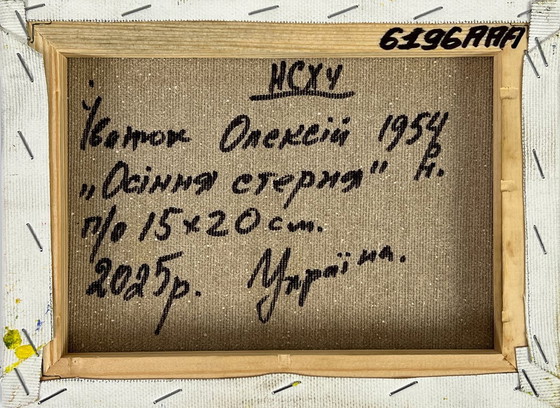 6196AAA
НСХУ
Іванюк Олексій 1954 р.н.
„Осіння стерня"
п/о 15х20см.
2025р. Україна.